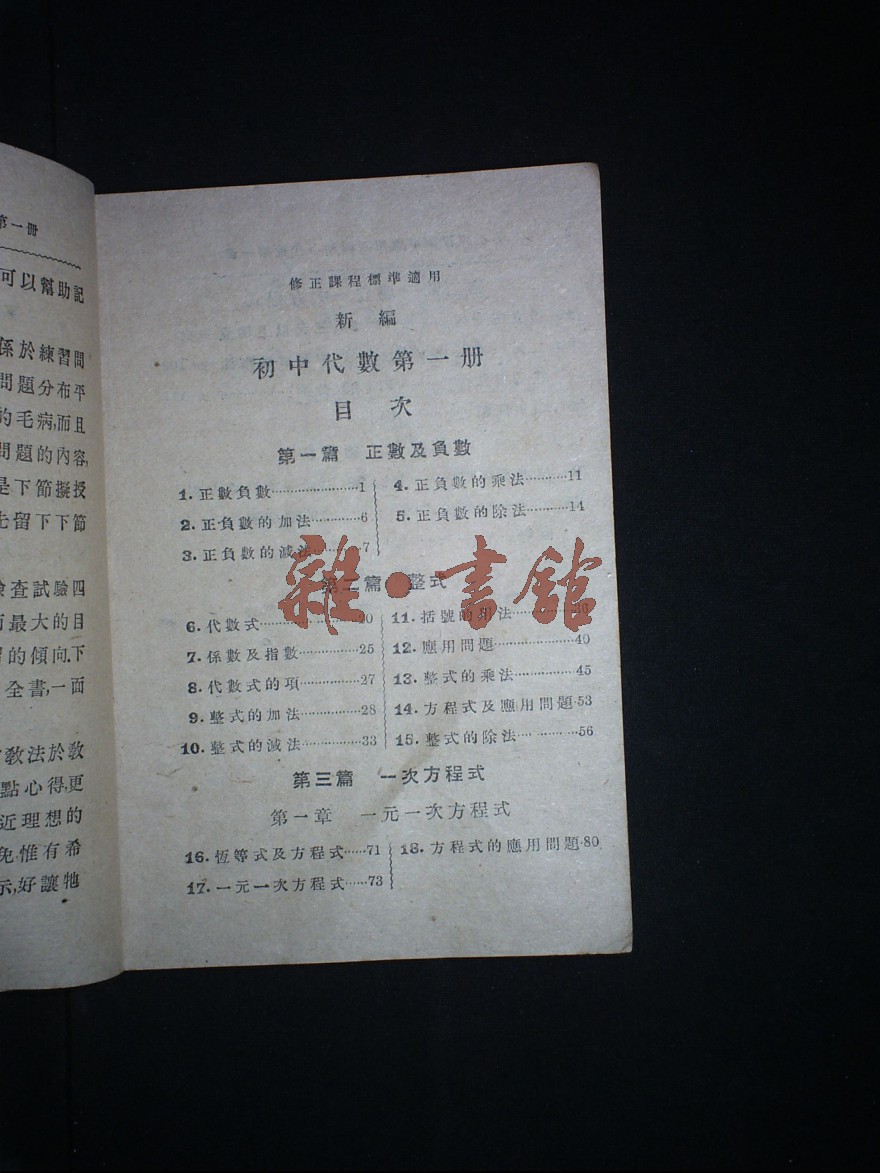 第一册
可以幫助記
係於練習問
問題分布平
的毛病,而且
問題的內容,
是下節擬授
留下下節
檢查試驗四
而最大的目
的傾向.下
全書,一面
教法於教
點心得,更
近理想的
免,惟有希
示,好讓牠
修正課程標準適用
新編
初中代數第一册
目次
第一篇 正數及負數
1.正數負數……………………1
2.正負數的加法…………6
3.正負數的減法…………7
4.正負數的乘法…………11
5.正負數的除法…………14
第二篇 整式
6.代數式……………………20
7.係數及指數……………25
8.代數式的項……………27
9.整式的加法……………28
10.整式的減法……………33
11.括號的用法……………36
12.應用問題………………40
13.整式的乘法……………45
14.方程式及應用問題·53
15.整式的除法……………56
第三篇 一次方程式
第一章 一元一次方程式
16.恆等式及方程式……71
17.一元一次方程式……73
18.方程式的應用問題·80
雜·書館